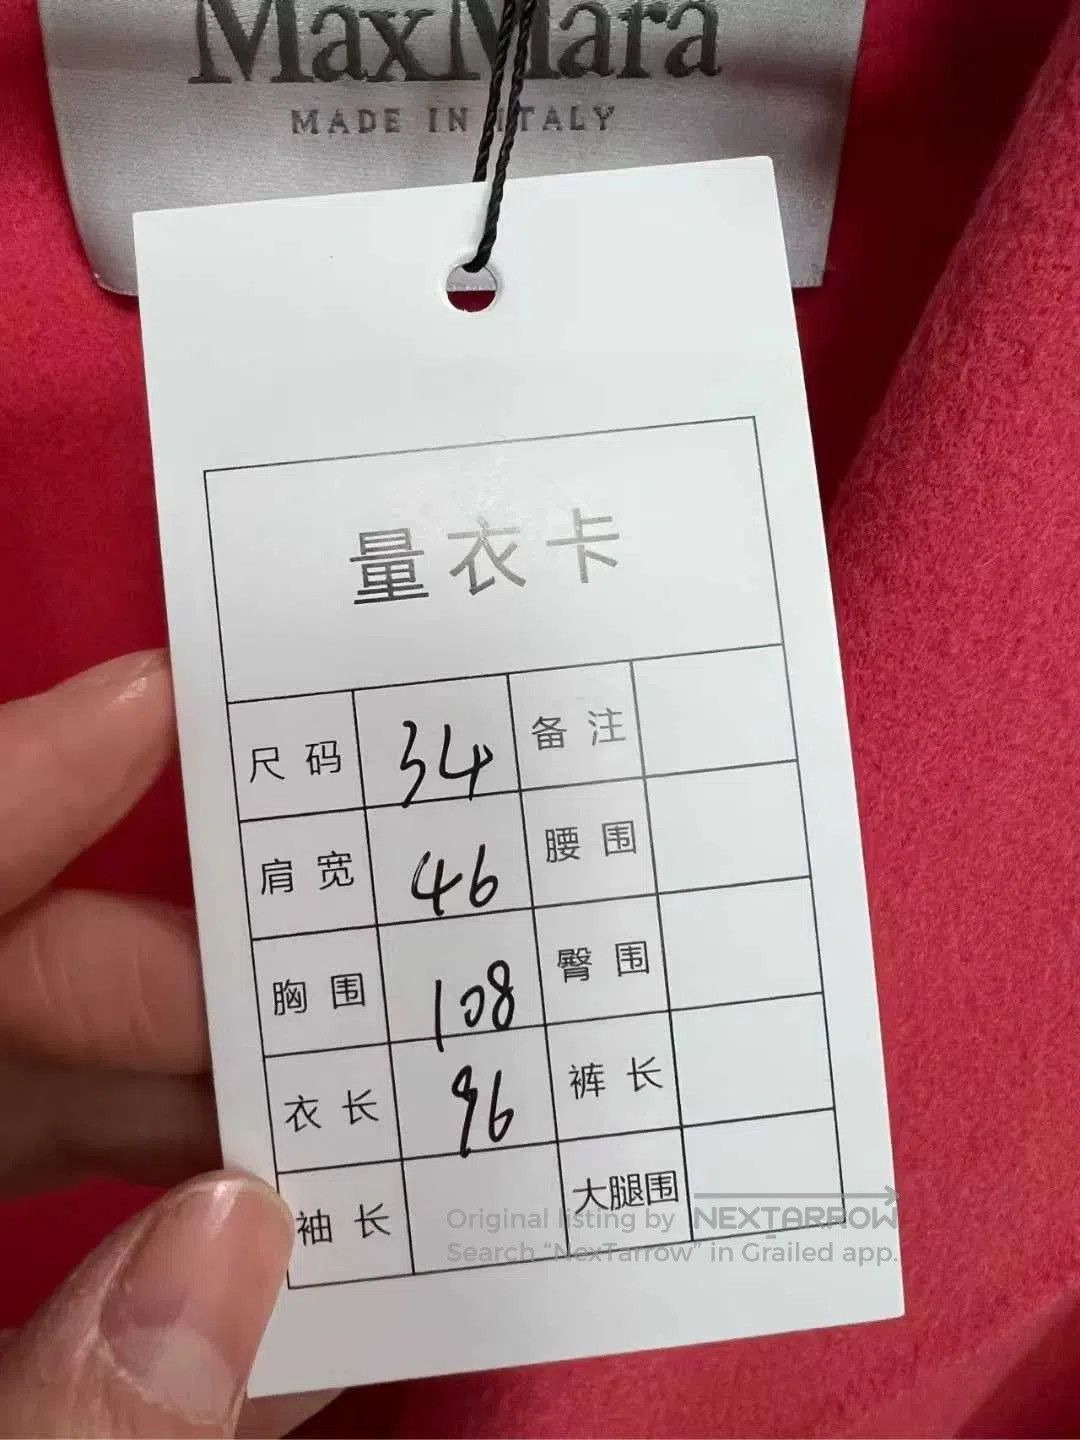 MaxMara
MADE IN ITALY
量衣卡
尺码 34 备注
肩宽 46 腰围
胸围 108 臀围
衣长 96 裤长
袖长 大腿围
Original listing by NEXTARROW
Search “NexTarrow” in Grailed app.